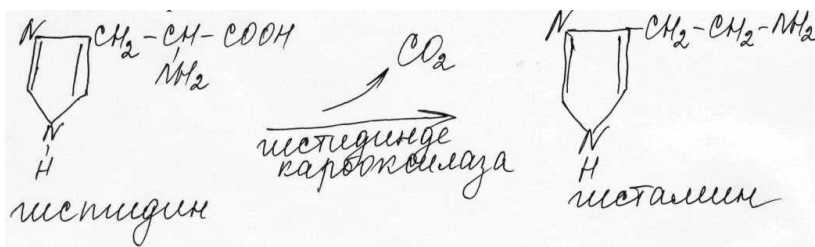 N CH₂ – CH – COOH
NH₂
N
H
гистидин
CO₂
гистидинде
карбоксилаза
N CH₂ – CH₂ – NH₂
N
H
гистамин